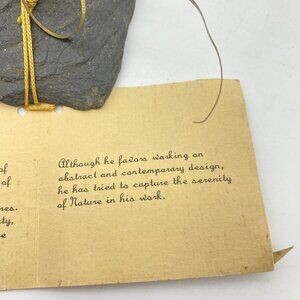 of
of
res.
ty,
e
Although he favors working on
abstract and contemporary design,
he has tried to capture the serenity
of Nature in his work.